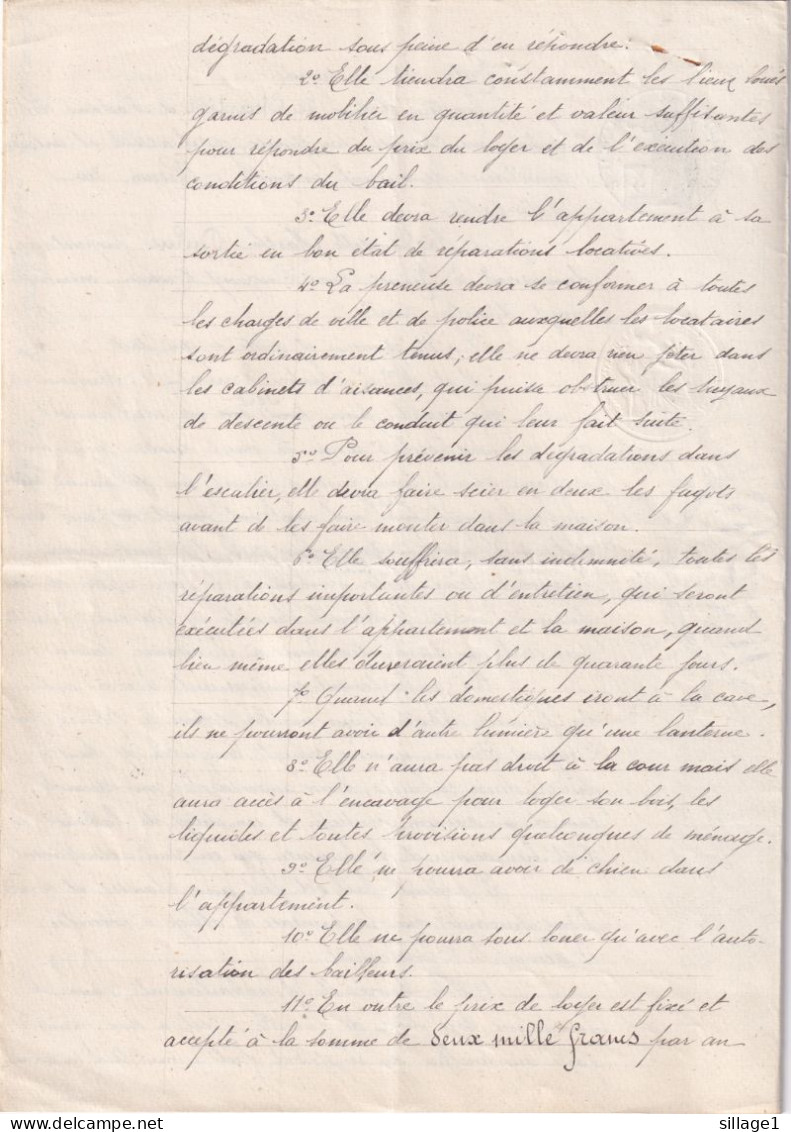 dégradation sous peine d'en répondre.
2º Elle tiendra constamment les lieux loués
garnis de mobilier en quantité et valeur suffisantes
pour répondre du prix du loyer et de l'exécution des
conditions du bail.
3º Elle devra rendre l'appartement à sa
sortie en bon état de réparations locatives.
4º La preneuse devra se conformer à toutes
les charges de ville et de police auxquelles les locataires
sont ordinairement tenus; elle ne devra rien jeter dans
les cabinets d'aisances, qui puisse obstruer les tuyaux
de descente ou le conduit qui leur fait suite.
5º Pour prévenir les dégradations dans
l'escalier, elle devra faire scier en deux les fagots
avant de les faire monter dans la maison.
6º Elle souffrira, sans indemnité, toutes les
réparations importantes ou d'entretien, qui seront
exécutées dans l'appartement et la maison, quand
bien même elles dureraient plus de quarante jours.
7º Quand les domestiques iront à la cave,
ils ne pourront avoir d'autre lumière qu'une lanterne.
8º Elle n'aura pas droit à la cour mais elle
aura accès à l'encavage pour loger son bois, les
liquides et toutes provisions quelconques de ménage.
9º Elle ne pourra avoir de chien dans
l'appartement.
10º Elle ne pourra sous louer qu'avec l'auto-
risation des bailleurs.
11º En outre le prix de loyer est fixé et
accepté à la somme de deux mille francs par an
sillage1